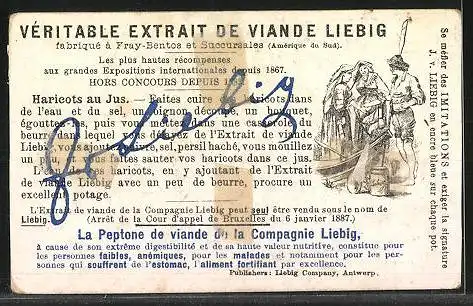 VÉRITABLE EXTRAIT DE VIANDE LIEBIG
fabriqué à Fray-Bentos et Succursales (Amérique du Sud).
Les plus hautes récompenses
aux grandes Expositions internationales depuis 1867.
HORS CONCOURS DEPUIS
Haricots au Jus. — Faites cuire haricots dans
de l'eau et du sel, un oignon découpé, un bouquet,
égouttez et vous mettez dans une casserole du
beurre dans lequel vous délayez de l'Extrait de viande
Liebig, vous ajoutez sel, persil haché, vous mouillez
un p faites sauter vos haricots dans ce jus.
L'eau des haricots, en y ajoutant de l'Extrait
de viande Liebig avec un peu de beurre, procure un
excellent potage.
L'Extrait de viande de la Compagnie Liebig peut seul être vendu sous le nom de
Liebig. (Arrêt de la Cour d'appel de Bruxelles du 6 janvier 1887.)
La Peptone de viande de la Compagnie Liebig,
à cause de son extrême digestibilité et de sa haute valeur nutritive, constitue pour
les personnes faibles, anémiques, pour les malades et notamment pour les per-
sonnes qui souffrent de l'estomac, l'aliment fortifiant par excellence.
Publishers: Liebig Company, Antwerp.
Se méfier des IMITATIONS et exiger la signature
J. v. LIEBIG en encre bleue sur chaque pot.
J v Liebig